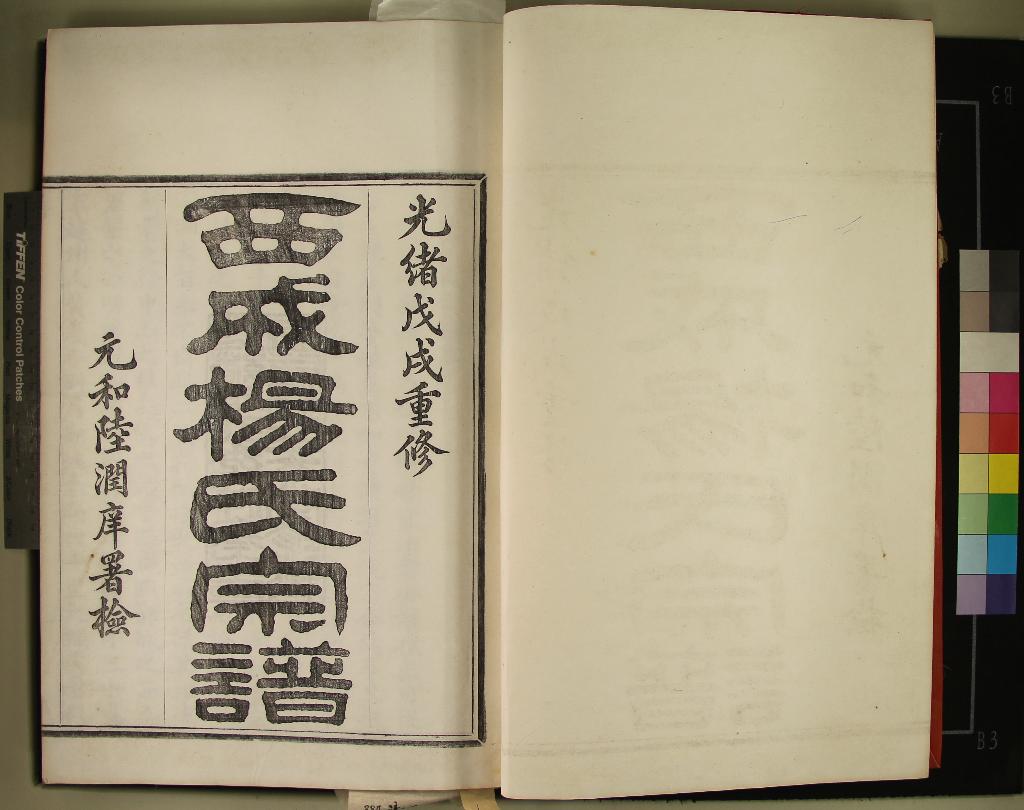 光緒戊戌重修
西成楊氏宗譜
元和陸潤庠署檢
TIFFEN Color Control Patches
B3
B3